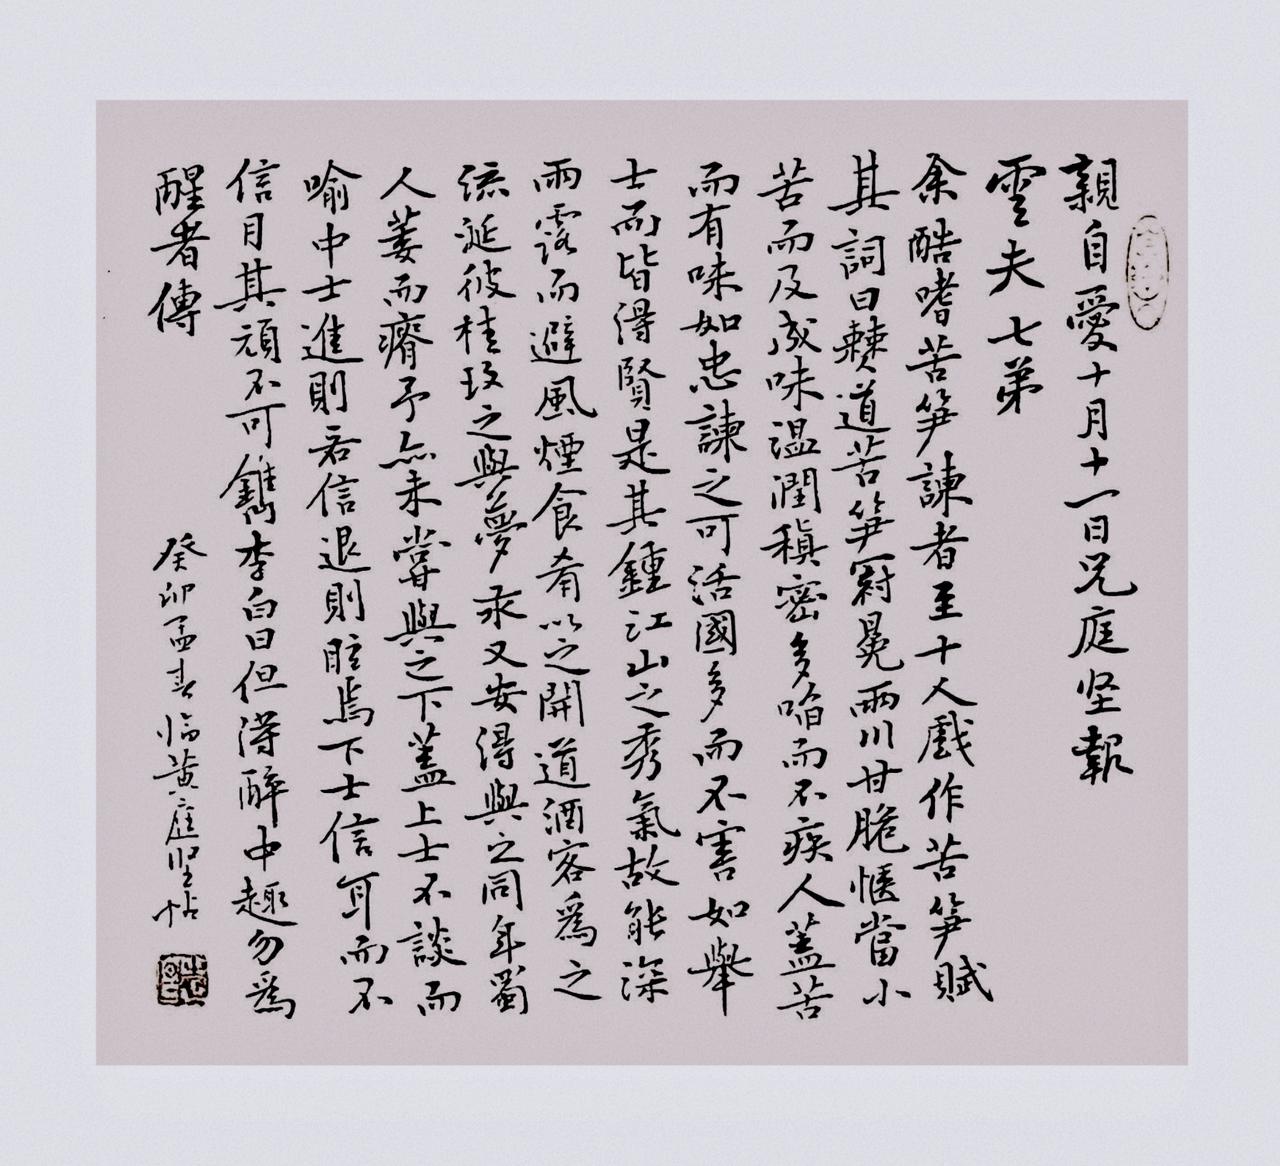 親自愛十月十一日兄庭坚報
雲夫七弟
余酷嗜苦笋諫者至十人戲作苦笋賦
其詞曰僰道苦笋冠冕兩川甘脆愜當小
苦而及成味温潤稹密多啗而不疾人蓋苦
而有味如忠諫之可活國多而不害如舉
士而皆得賢是其鍾江山之秀氣故能深
雨露而避風煙食肴以之開道酒客爲之
流涎彼桂玫之與夢汞又安得與之同年蜀
人萎而瘠予亦未嘗與之下蓋上士不談而
喻中士進則若信退則眩焉下士信耳而不
信目其頑不可鐫李白曰但得醉中趣勿爲
醒者傳
癸卯孟春临黄庭坚帖